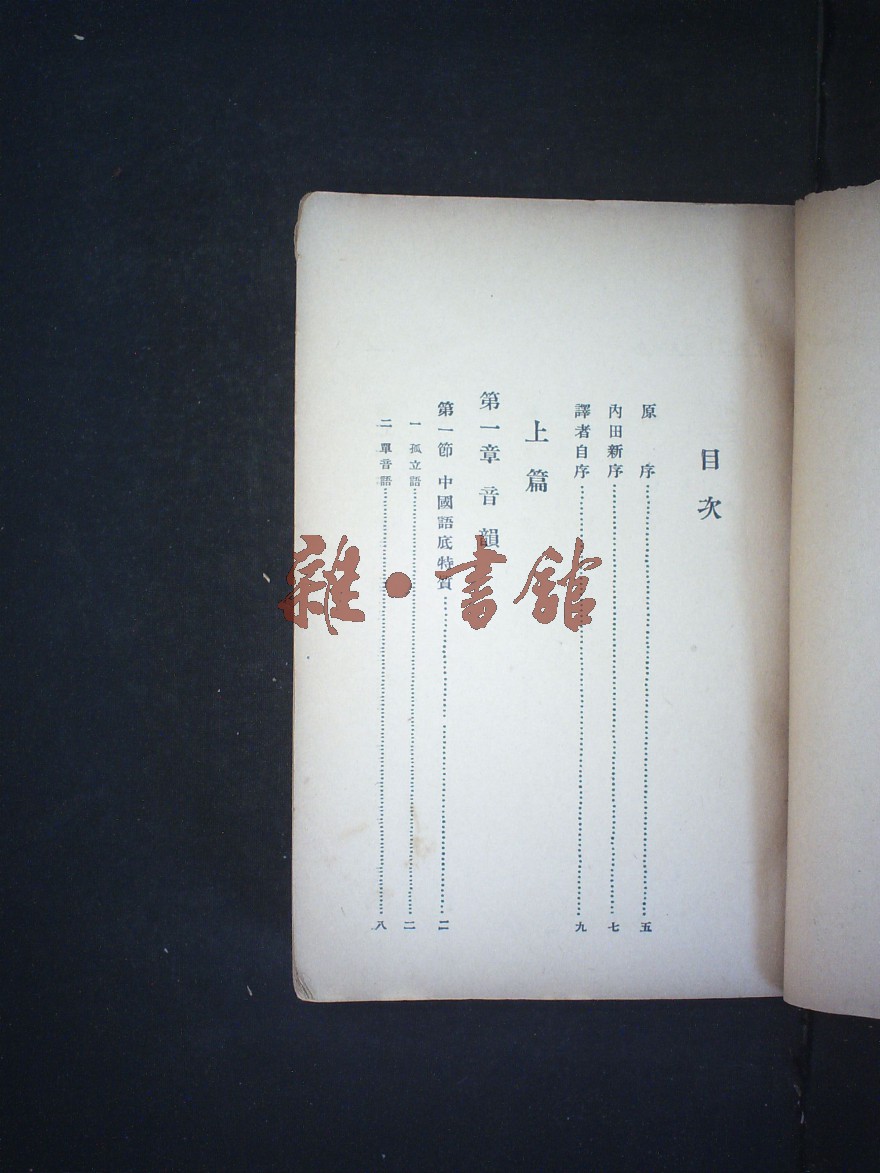 目次
原序……五
內田新序……七
譯者自序……九
上篇
第一章 音韻
第一節 中國語底特質……二
一 孤立語……二
二 單音語……八
雜·書館